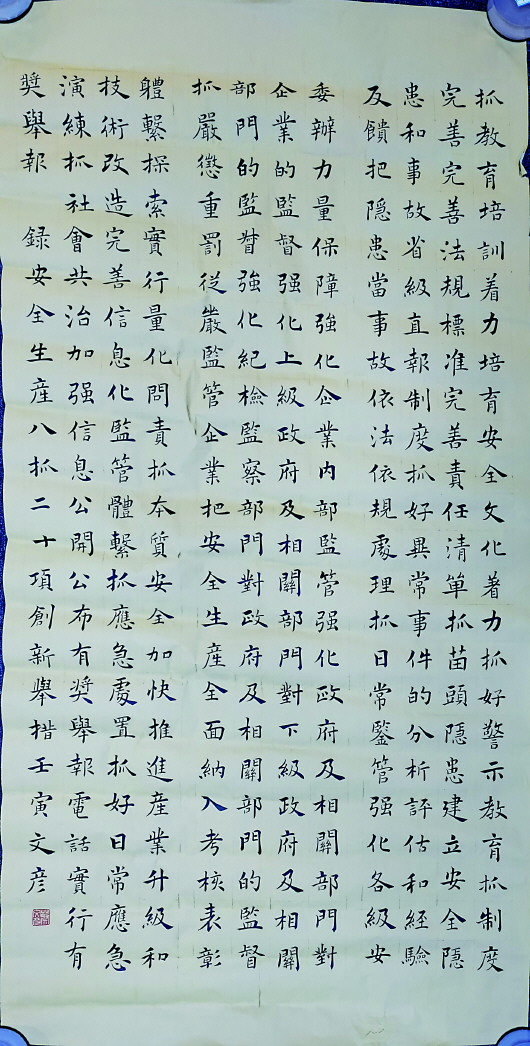 抓教育培訓着力培育安全文化著力抓好警示教育抓制度
完善完善法規標准完善責任清單抓苗頭隱患建立安全隱
患和事故省級直報制度抓好異常事件的分析評估和經驗
反饋把隱患當事故依法依規處理抓日常鑒管强化各級安
委辦力量保障強化企業内部監管强化政府及相關部門對
企業的監督强化上級政府及相關部門對下級政府及相關
部門的監督強化紀檢監察部門對政府及相關部門的監督
抓嚴懲重罰從嚴監管企業把安全生産全面納入考核表彰
體繫探索實行量化問責抓本質安全加快推進産業升級和
技術改造完善信息化監管體繫抓應急處置抓好日常應急
演練抓社會共治加强信息公開公布有奬舉報電話實行有
奬舉報 録安全生産八抓二十項創新舉措壬寅文彦